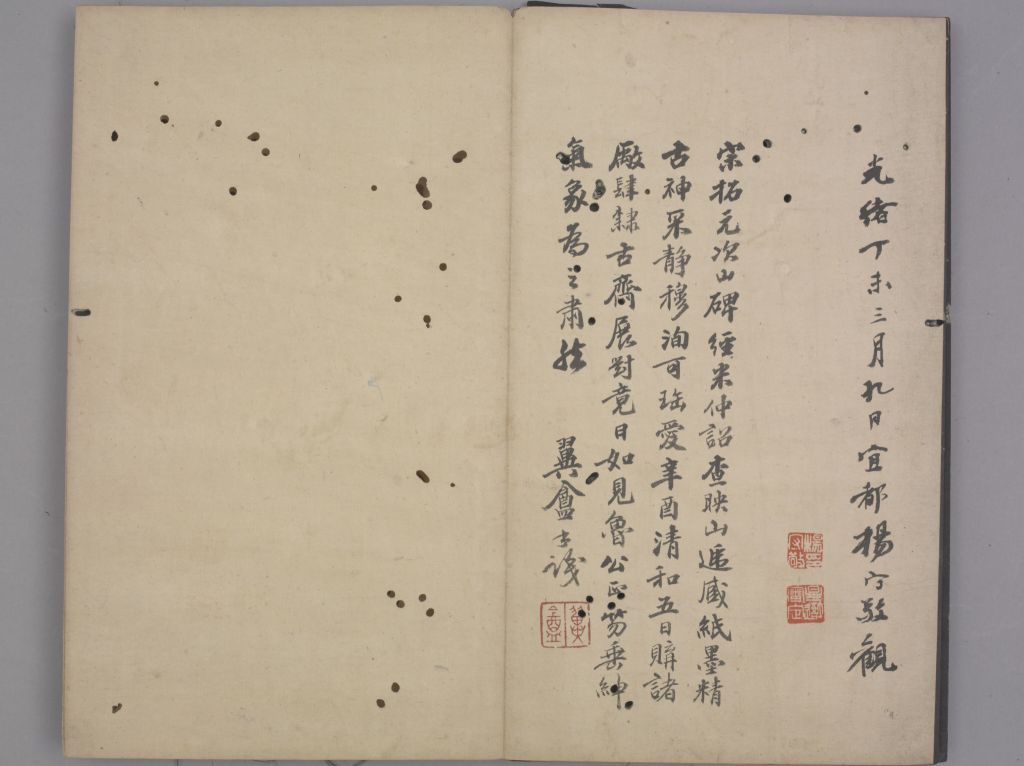 光緒丁未三月九日宜都楊守敬觀
宋拓元次山碑經米仲詔查映山遞藏紙墨精
古神采靜穆洵可珤愛辛酉清和五日購諸
廠肆隸古齋展對竟日如見魯公正笏垂紳
氣象為之肅然
翼盦士識